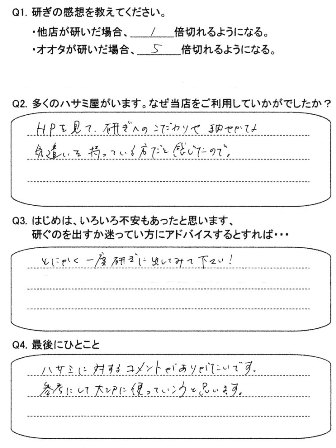 Q1. 研ぎの感想を教えてください。
・他店が研いだ場合、 1 倍切れるようになる。
・オオタが研いだ場合、 5 倍切れるようになる。
Q2. 多くのハサミ屋がいます。なぜ当店をご利用していかがでしたか？
HPを見て、研ぎへのこだわりや
気遣いを持っている方だと感じたので。
Q3. はじめは、いろいろ不安もあったと思います、
研ぐのを出すか迷ってい方にアドバイスするとすれば・・・
とにかく一度研ぎに出してみて下さい！
Q4. 最後にひとこと
ハサミに対するコメントがありがたいです。
参考にして大切に使っていこうと思います。